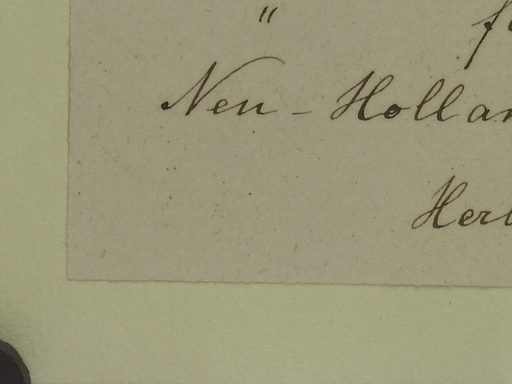 " f
Neu-Hollan
Her